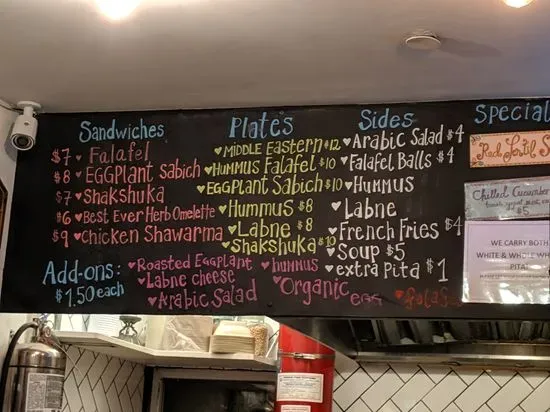 Sandwiches
$7 ♥ Falafel
$8 ♥ EGGPlant Sabich
$7 ♥ Shakshuka
$6 ♥ Best Ever Herb Omelette
$9 ♥ Chicken Shawarma
Plates
♥ MIDDLE EASTERN $12
♥ HUMMUS FALAFEL $10
♥ EGGPLANT SABICH $10
♥ Hummus $8
♥ Labne $8
♥ Shakshuka $10
Sides
♥ Arabic Salad $4
♥ Falafel Balls $4
♥ Hummus
♥ Labne
♥ French Fries $4
♥ Soup $5
♥ extra Pita $1
Add-ons:
$1.50 each
♥ Roasted Eggplant
♥ Labne cheese
♥ Arabic Salad
♥ hummus
♥ Organic egg
♥ falafel
Special
Red
Chilled Cucumber
$5
WE CARRY BOTH
WHITE & WHOLE WH
PITA